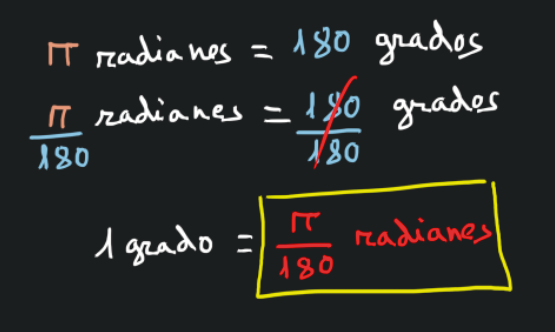 π radianes = 180 grados
π/180 radianes = 180/180 grados
1 grado = π/180 radianes